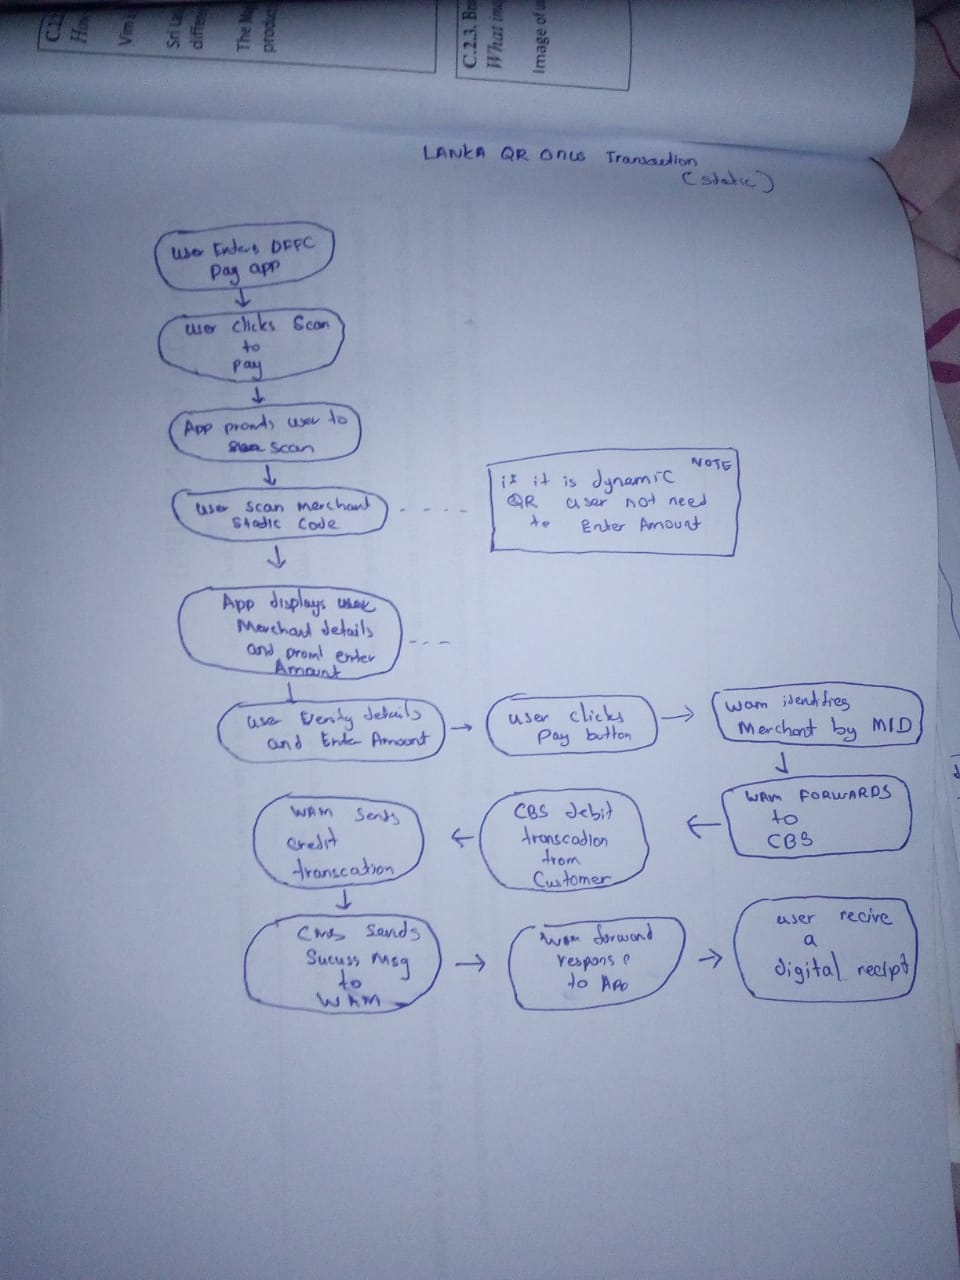 C.2.2
How
Vim i
Sri La
differe
The Ma
produc
C.2.3. Br
What ima
Image of u
LANKA QR Onus Transaction
(static)
User Enters DFFC
Pay app
↓
user clicks Scan
to
Pay
↓
App promts user to
scan
↓
User Scan merchant
Static Code
↓
NOTE
if it is dynamic
QR user not need
to Enter Amount
App displays
Merchant details
and promt enter
Amount
User Verify details
and Enter Amount
→
user clicks
Pay button
→
Wam identifies
Merchant by MID
↓
WAM FORWARDS
to
CBS
←
CBS debit
transcation
from
Customer
←
WAM Sends
credit
transcation
↓
Sends
Sucuss Msg
to
WAM
→
WAM forward
response
to App
→
user recive
a
digital recipt